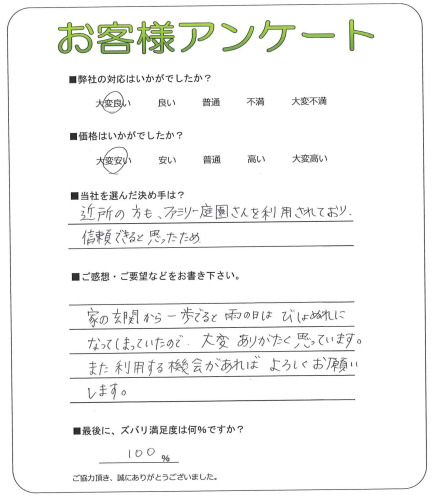 お客様アンケート
■弊社の対応はいかがでしたか？
大変良い 良い 普通 不満 大変不満
■価格はいかがでしたか？
大変安い 安い 普通 高い 大変高い
■当社を選んだ決め手は？
近所の方も、ファミリー庭園さんを利用されており、
信頼できると思ったため
■ご感想・ご要望などをお書き下さい。
家の玄関から一歩でると雨の日は びしょぬれに
なってしまっていたので、大変 ありがたく思っています。
また利用する機会があれば よろしくお願い
します。
■最後に、ズバリ満足度は何％ですか？
100 ％
ご協力頂き、誠にありがとうございました。